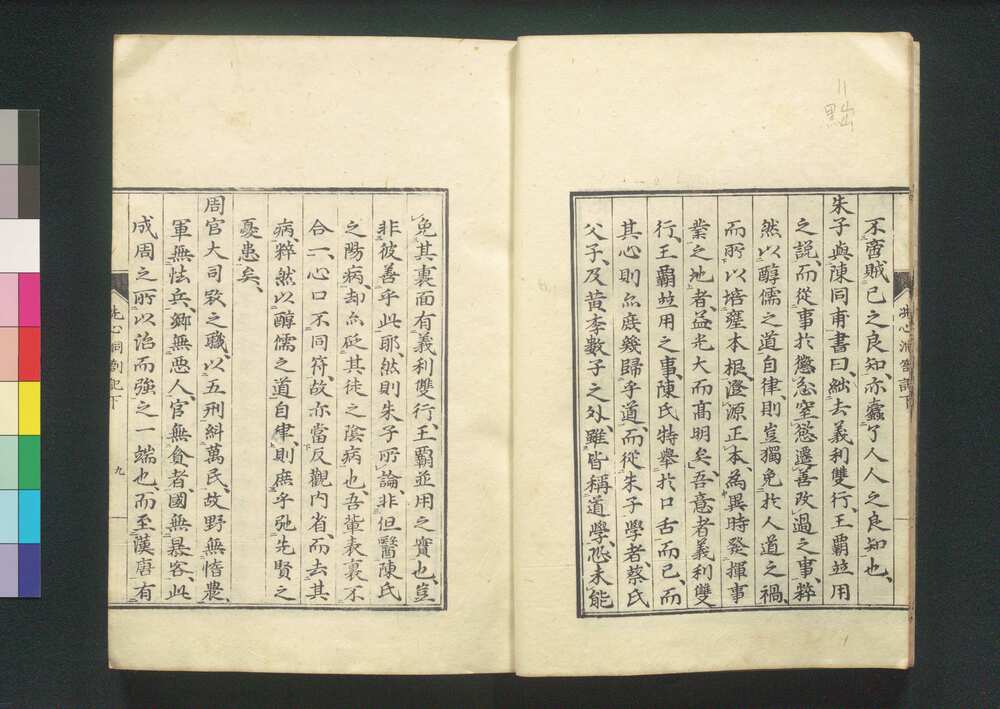 〃
點
不啻賊己之良知亦蠧了人人之良知也、
朱子與陳同甫書曰、絀去義利雙行、王覇竝用
之說、而從事於懲忿窒慾遷善改過之事、粹
然以醇儒之道自律、則豈獨免於人道之禍、
而所以培壅本根、澄源正本、為異時發揮事
業之地者、益光大而高明矣、吾意者義利雙
行、王覇竝用之事、陳氏特舉於口舌而已、而
其心則亦庶幾歸乎道、而從朱子學者、蔡氏
父子、及黄李數子之外、雖皆稱道學、恐未能
洗心洞劄記下
免其裏面有義利雙行、王覇並用之實也、豈
非彼善乎此耶、然則朱子所論、非但醫陳氏
之陽病、却亦砭其徒之陰病也、吾輩表裏不
合一、心口不同符、故亦當反觀内省、而去其
病、粹然以醇儒之道自律、則庶乎弛先賢之
憂患矣、
周官大司寇之職、以五刑糾萬民、故野無惰農、
軍無怯兵、鄉無惡人、官無貪者國無暴客、此
成周之所以治而強之一端也、而至漢唐有
洗心洞劄記下
九